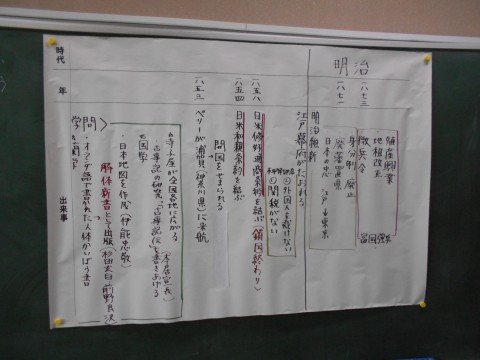 時代
年
出来事
明治
一八五三
一八五四
一八五八
一八七一
一八七三
学問
オランダ語で書かれた人体かいぼう書
解体新書として出版(杉田玄白 前野良沢)
・日本地図を作成(伊能忠敬)
国学
古事記の研究「古事記伝」を書きあげる
(本居宣長)
寺子屋が全国各地に広がる
ペリーが浦賀(神奈川県)に来航
開国をせまられる
日米和親条約を結ぶ
日米修好通商条約を結ぶ(鎖国終わり)
①外国人を裁けない
②関税がない
江戸幕府がたおれる
明治維新
日本の中心 江戸→東京
廃藩置県
身分制 廃止
徴兵令
地租改正
殖産興業
富国強兵